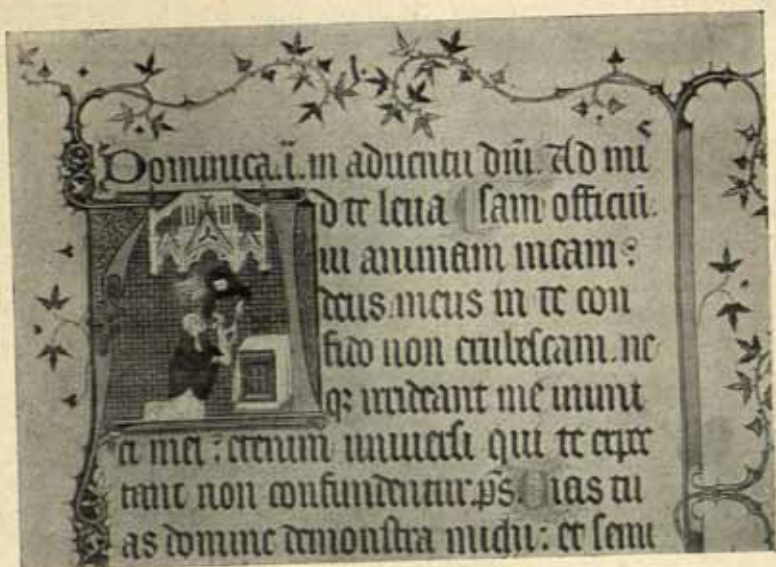 Dominica .i. in aduentu dñi. Ad mi
Ad te leua sam officiū.
ui animam meam:
deus meus in te con
fido non erubescam. ne
q; irrideant me inimi
ci mei: etenim uniuersi qui te expec
tant non confundentur. p̄s. Uias tu
as domine demonstra michi: et semi